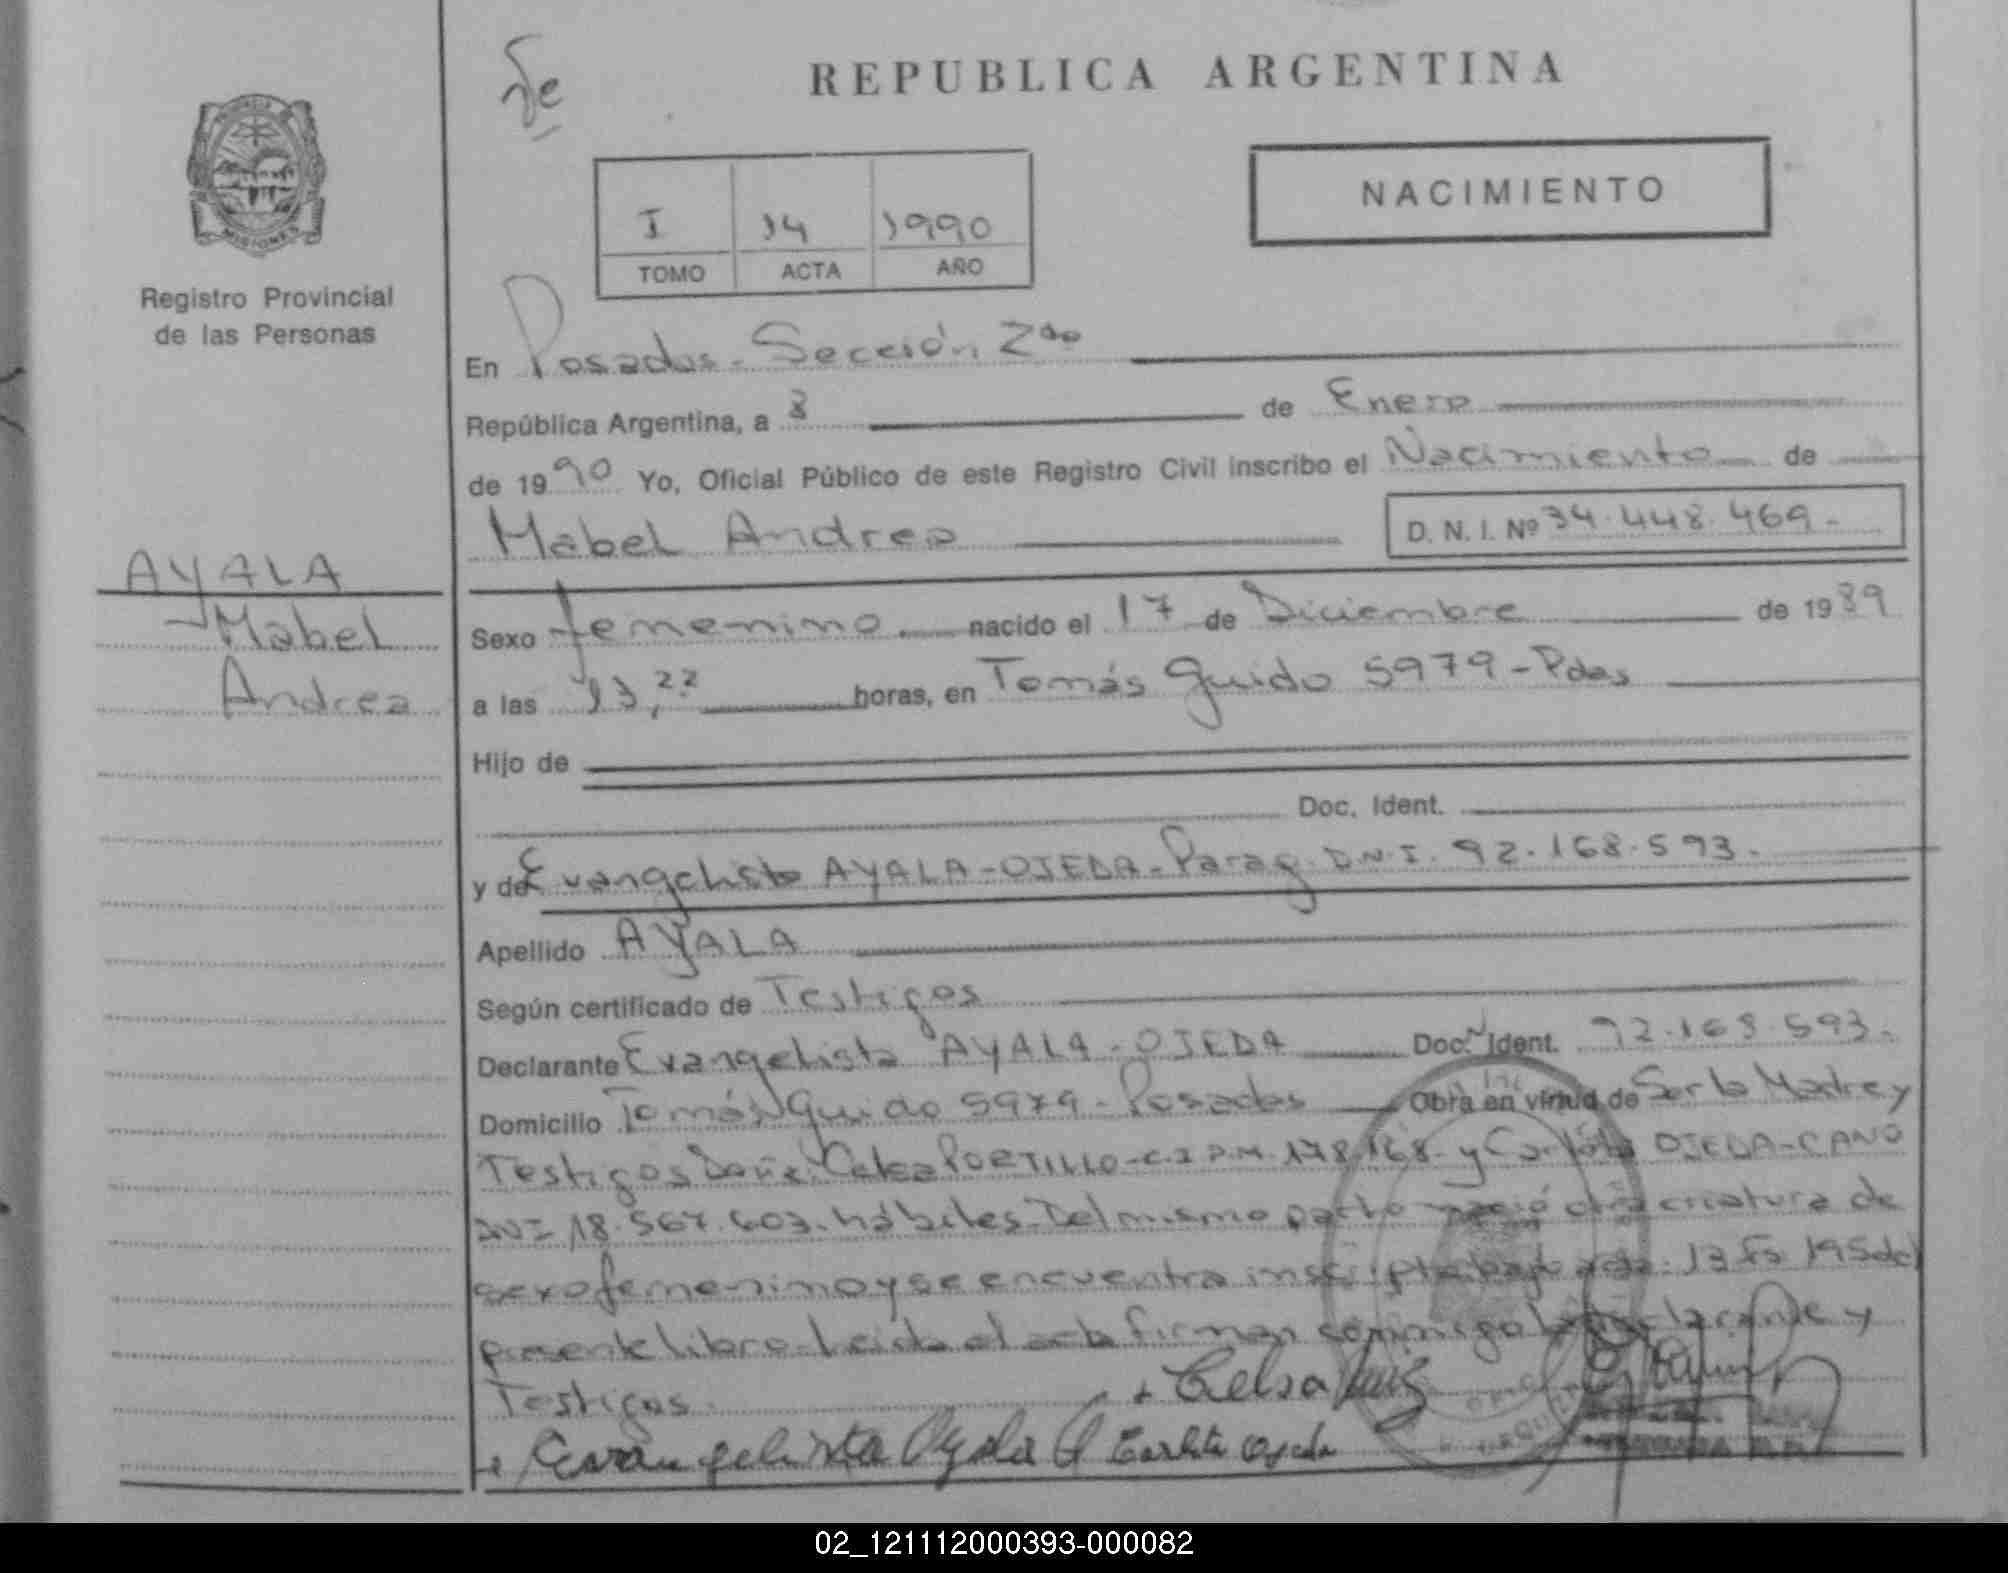 REPUBLICA ARGENTINA
NACIMIENTO
I 14 1990
TOMO ACTA AÑO
MISIONES
Registro Provincial
de las Personas
En Posadas - Sección 2da
República Argentina, a 8 de Enero
de 1990 Yo, Oficial Público de este Registro Civil inscribo el Nacimiento de
Mabel Andrea D. N. I. Nº 34.448.469.-
AYALA
Mabel
Andrea
Sexo femenino nacido el 17 de Diciembre de 1989
a las 13,22 horas, en Tomás Guido 5979 - Pdas
Hijo de
Doc. Ident.
y de Evangelista AYALA-OJEDA- Parag. D.N.I. 92.168.593.-
Apellido AYALA
Según certificado de Testigos
Declarante Evangelista AYALA-OJEDA Doc. Ident. 92.168.593.-
Domicilio Tomás Guido 5979 - Posadas Obra en virtud de Ser la Madre y
Testigos Doña Celsa PORTILLO-C.I.P.M. 178.168- y Carlota OJEDA-CANO
DNI 18.567.603. hábiles. Del mismo parto nació otra criatura de
sexo femenino y se encuentra inscripta bajo acta: 13 fs 195 del
presente libro. Leída el acta firman conmigo la declarante y
Testigos.
Celsa Ruiz
Evangelista Ayala O Carlota Ojeda
02_121112000393-000082